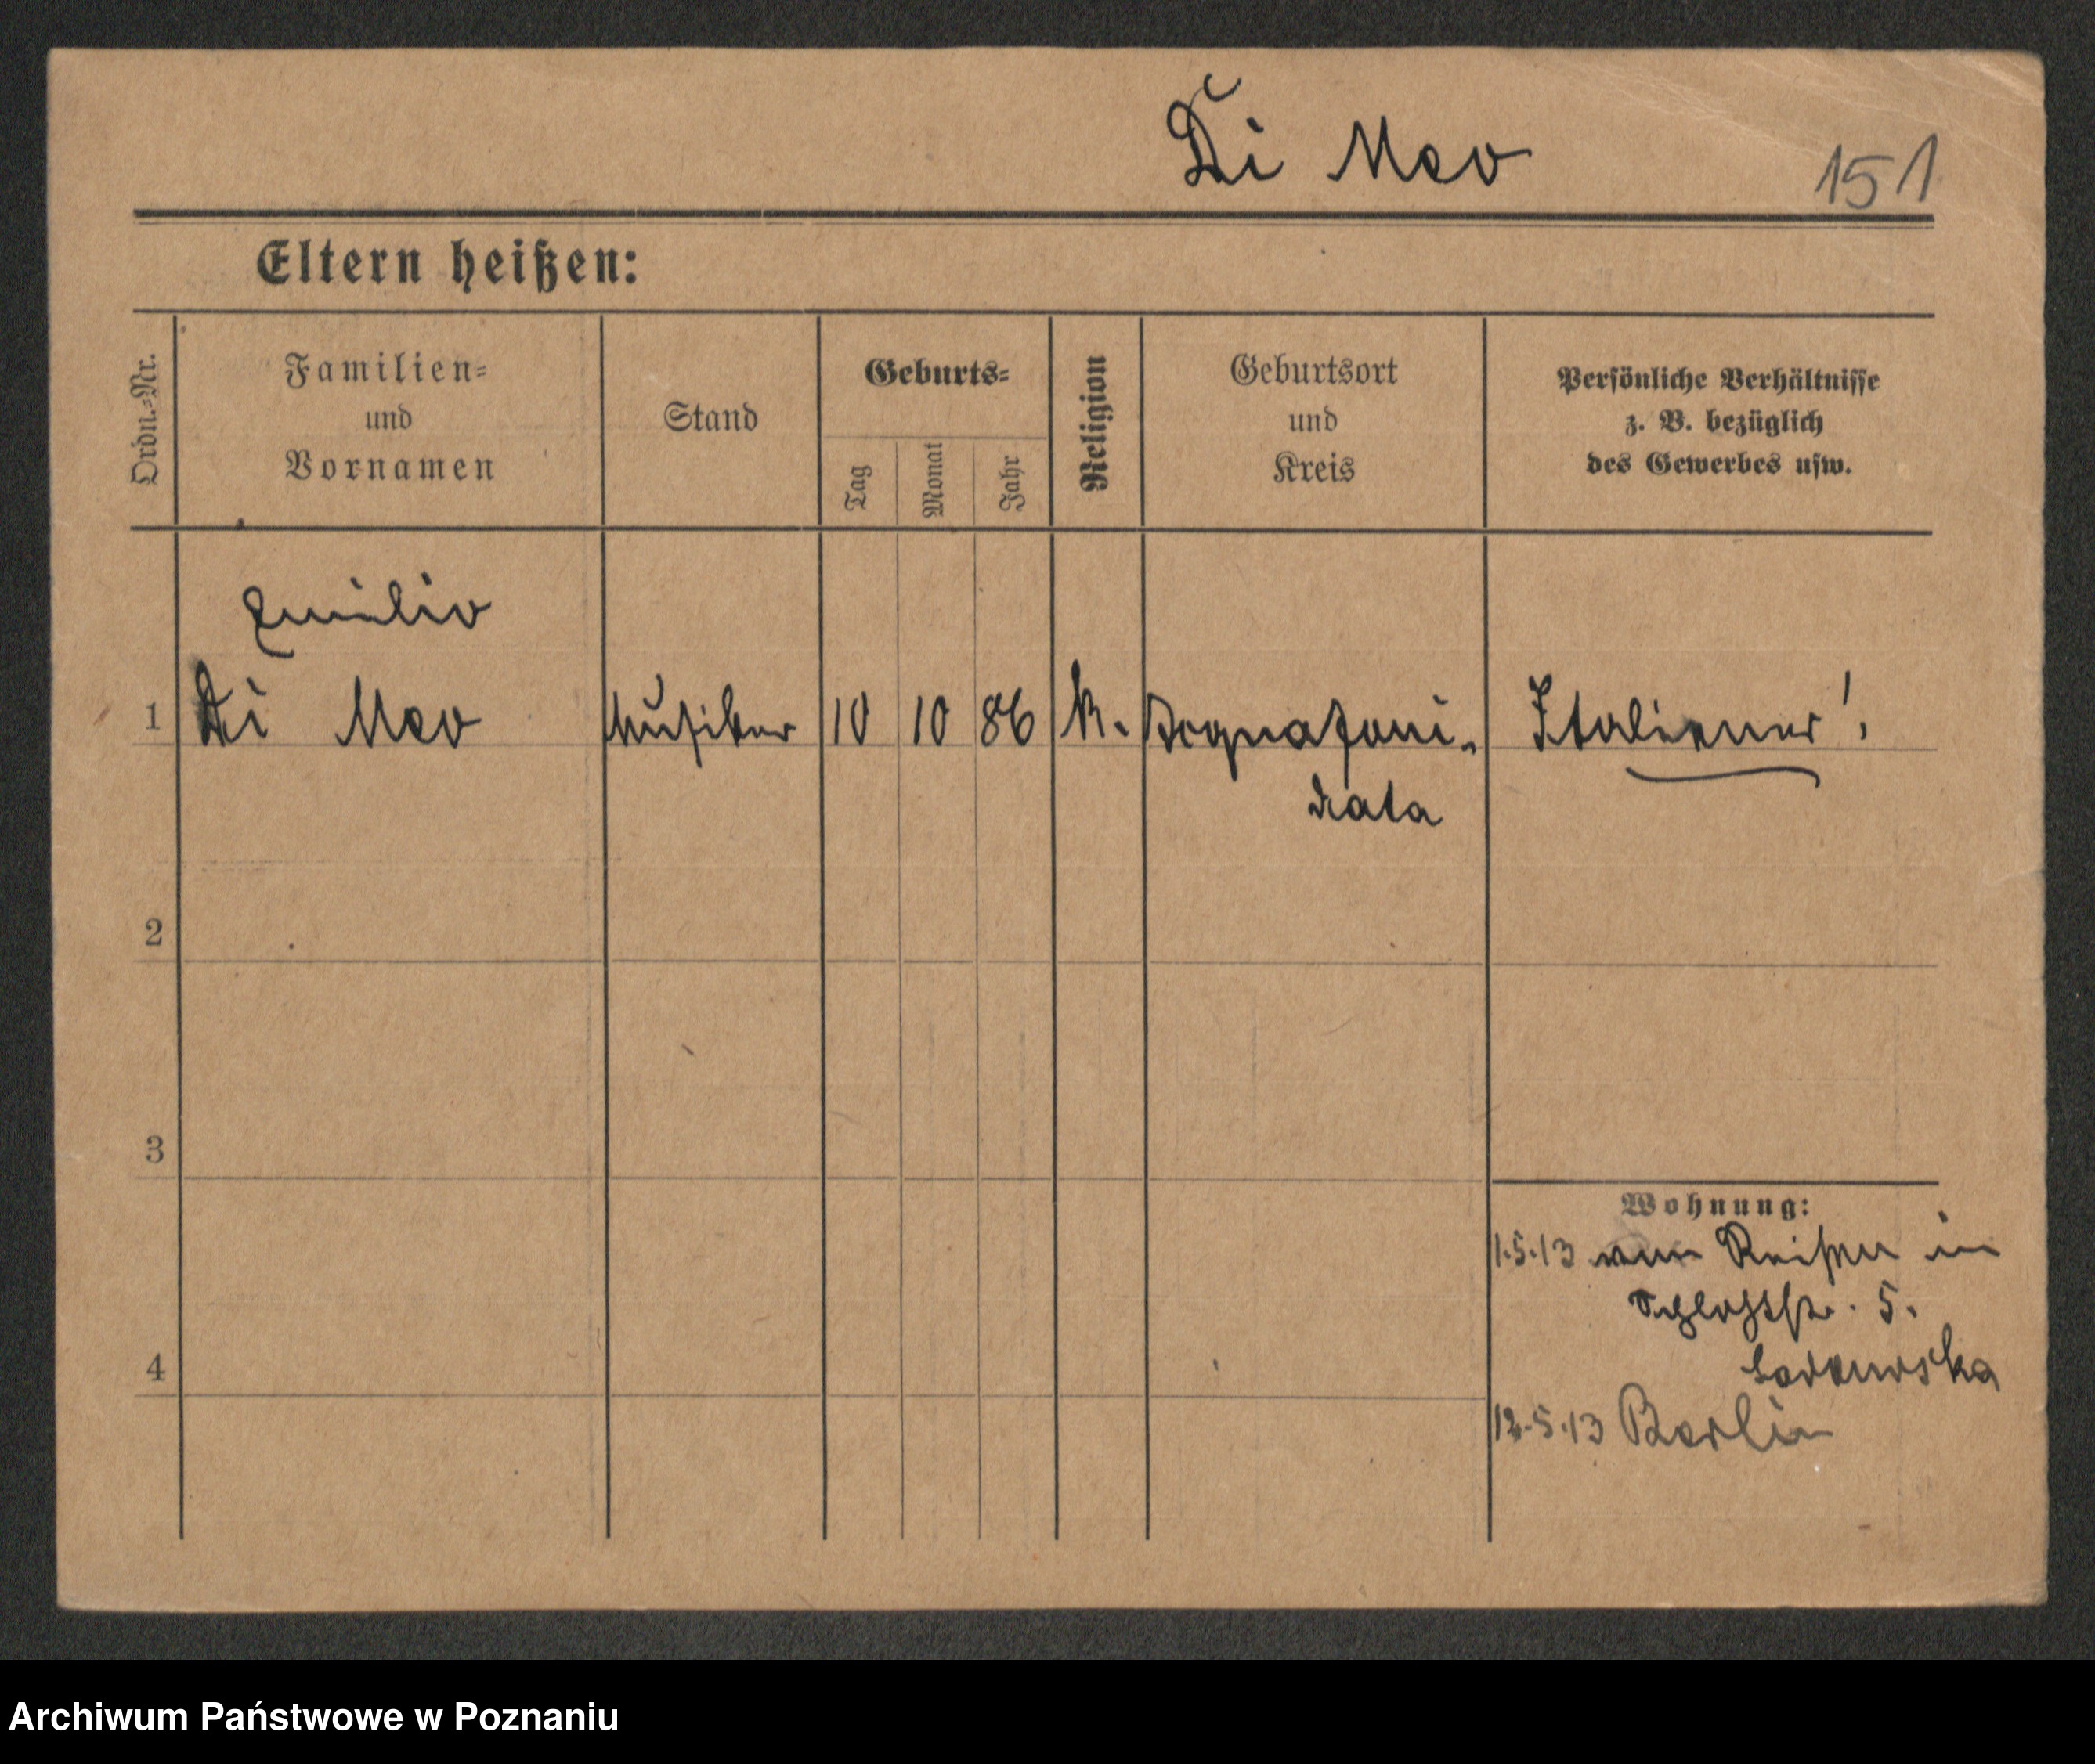 Di Meo
151
Eltern heißen:
Ordn.-Nr.
Familien-
und
Vornamen
Stand
Geburts-
Tag
Monat
Jahr
Religion
Geburtsort
und
Kreis
Persönliche Verhältnisse
z. B. bezüglich
des Gewerbes usw.
Emilio
1 Di Meo Musiker 10 10 86 k. Italiener!
2
3
Wohnung:
1.5.13 von Reisen in
Schloßstr. 5.
4
12.5.13 Berlin
Archiwum Państwowe w Poznaniu